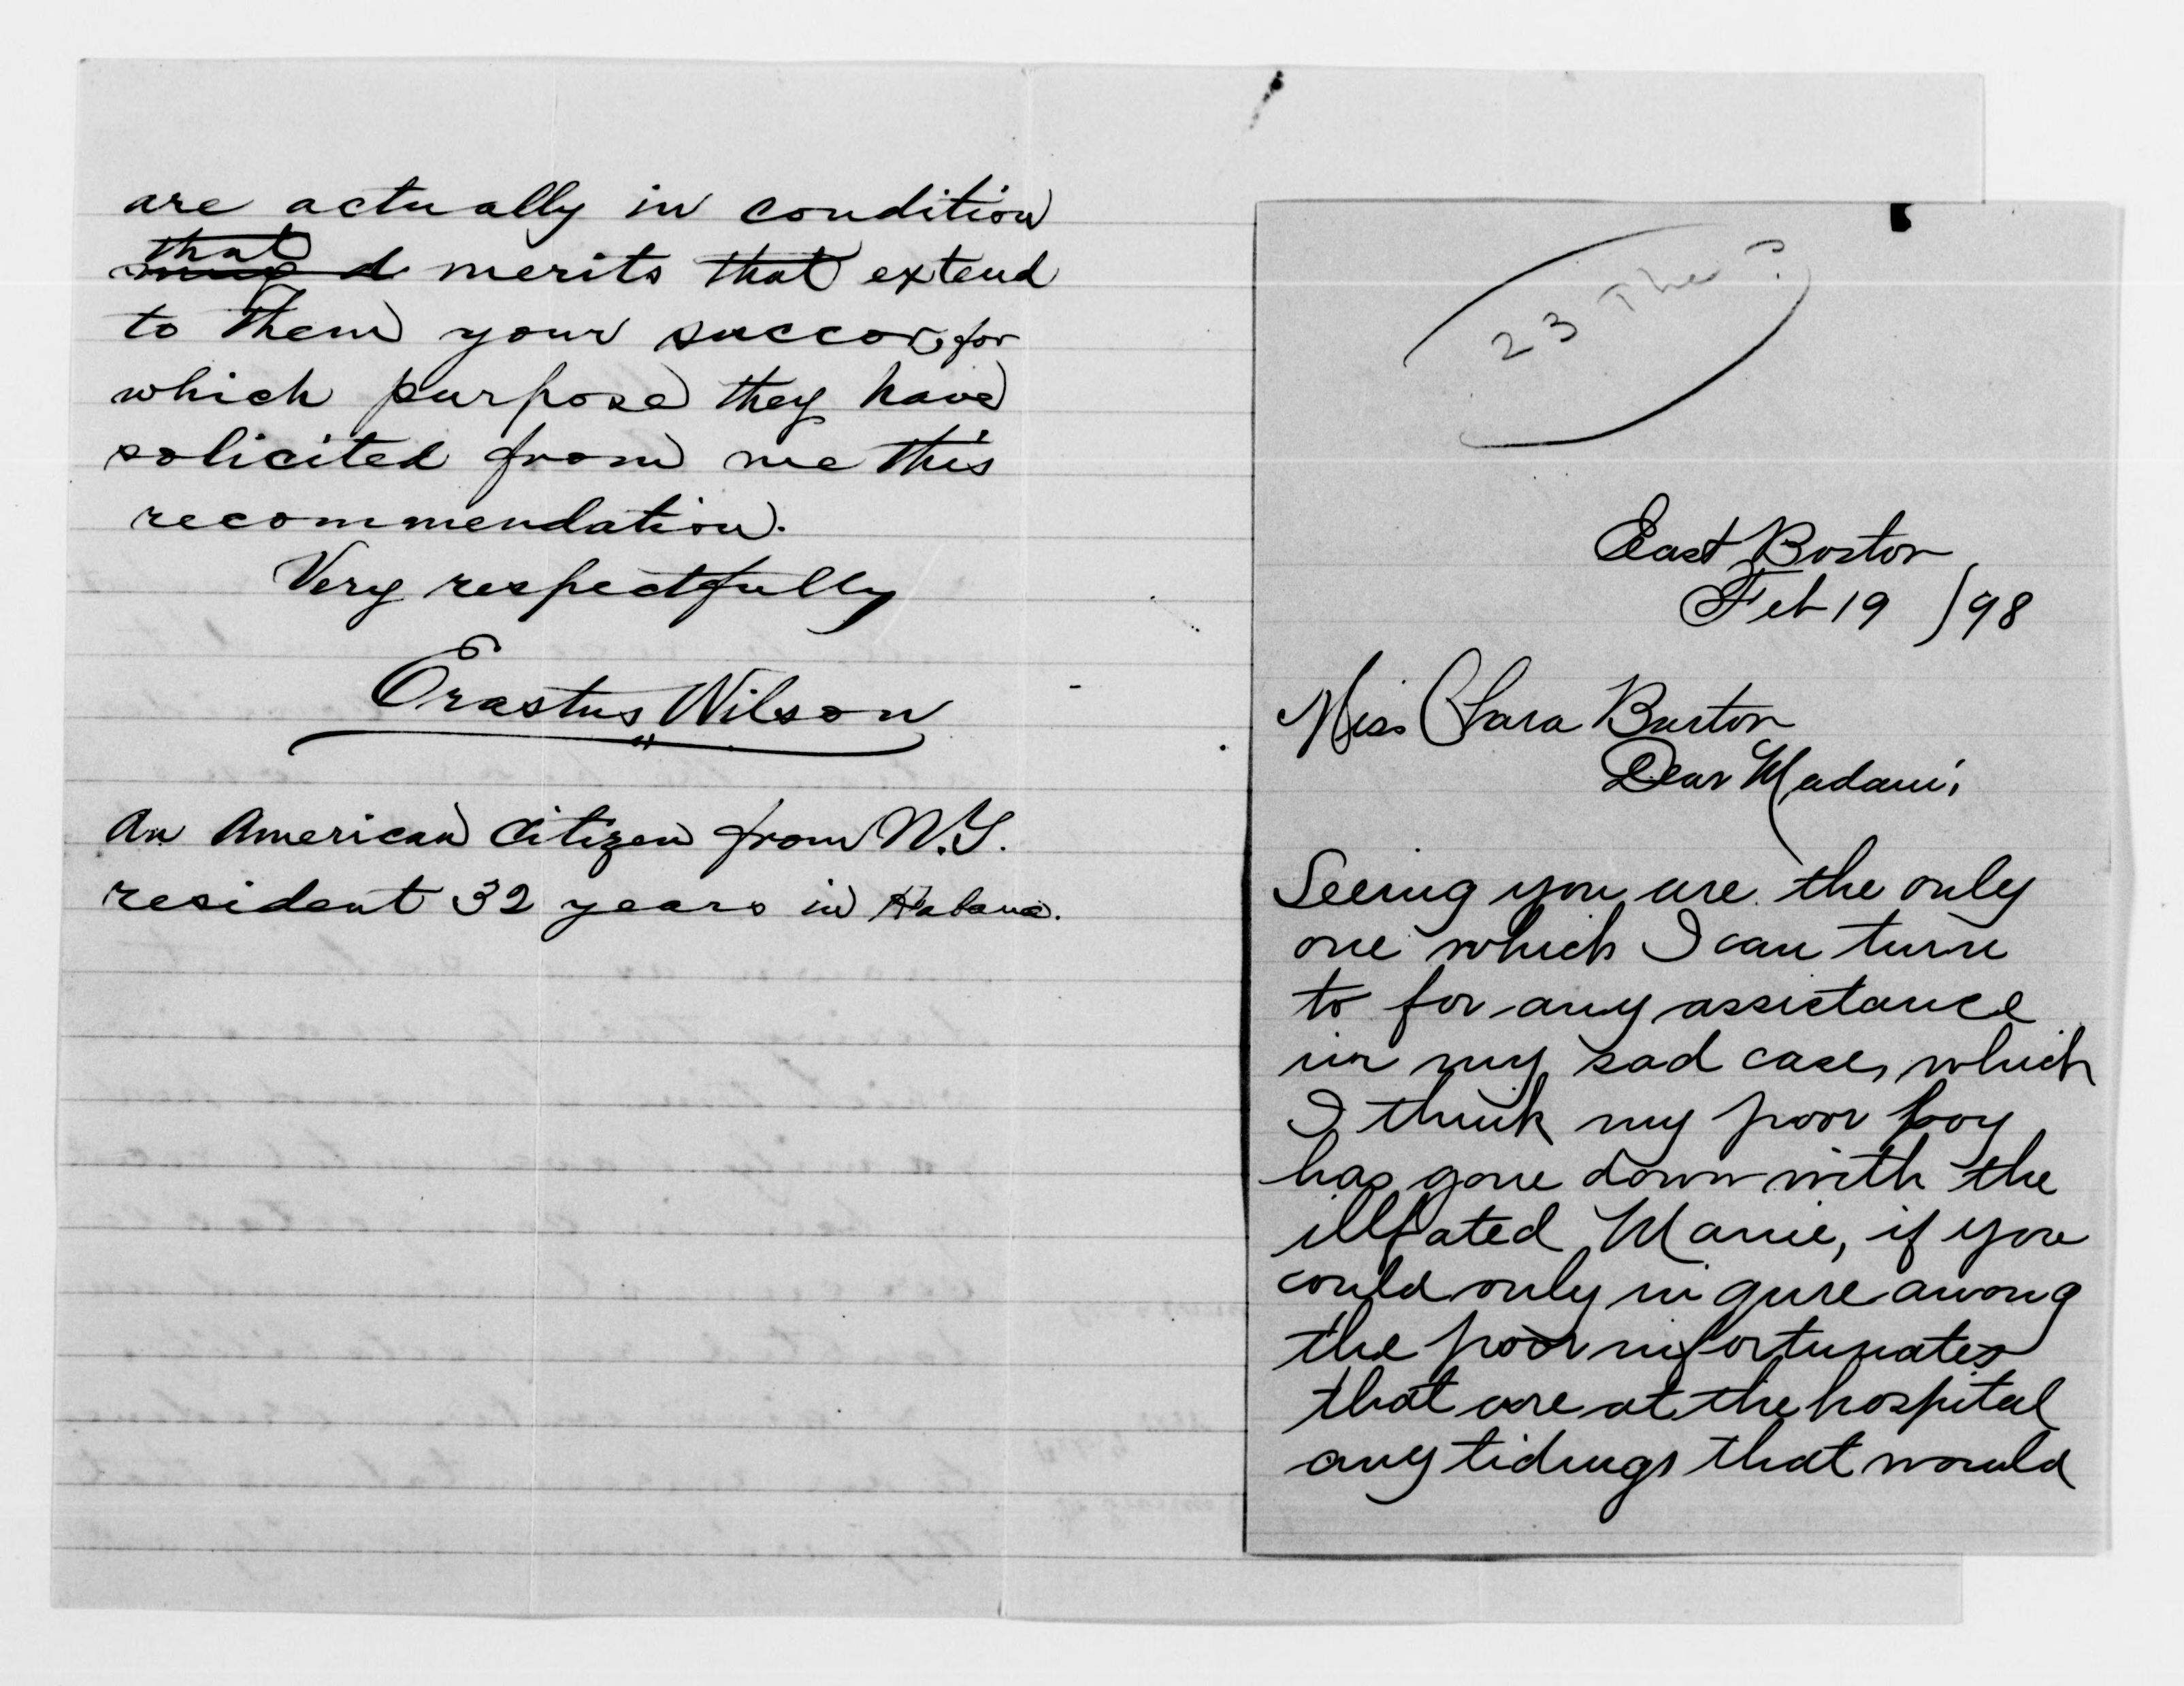 are actually in condition
that
merits that extend
to them your succor, for
which purpose they have
solicited from me this
recommendation.
Very respectfully
Erastus Wilson
An American Citizen from N.Y.
resident 32 years in Habana.
23
East Boston
Feb 19 /98
Miss Clara Barton
Dear Madam;
Seeing you are the only
one which I can turn
to for any assistance
in my sad case, which
I think my poor boy
has gone down with the
illfated Maine, if you
could only in quire among
the poor unfortunates
that are at the hospital
any tidings that would